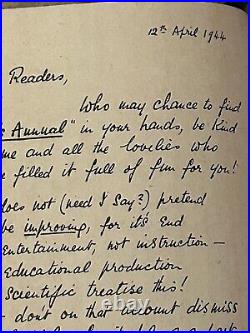 12th April 1944
Readers,
Who may chance to find
s Annual" in your hands, be kind
me and all the lovelies who
e filled it full of fun for you!
does not (need I Say?) pretend
be improving, for it's End
Entertainment, not instruction –
Educational production
Scientific treatise this!
– dont on that account dismiss